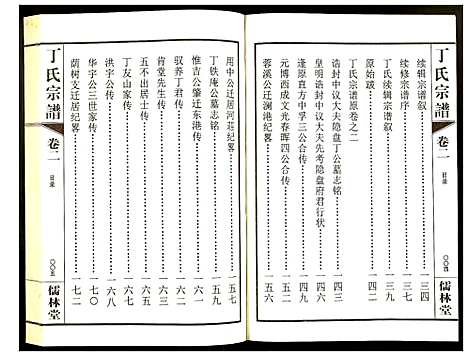 丁氏宗譜
卷二
目录
〇〇四
儒林堂
续辑宗谱叙……三四
续修宗谱序……三七
丁氏续辑宗谱叙……三九
原始跋……四二
丁氏宗谱原卷之二
诰封中议大夫隐盘丁公墓志铭……四三
皇明诰封中议大夫先考隐盘府君行状……四五
逢原直方中孚三公合传……四八
元博西成文光春晖四公合传……五四
蓉溪公迁澜港纪畧……五六
用中公迁居河荘纪畧……五七
丁铁庵公墓志铭……五九
惟吉公肇迁东港传……六一
驭荞丁君传……六二
肯堂先生传……六四
五不出居士传……六五
丁友山家传……六六
洪宇公传……六八
华宇公三世家传……七〇
荫树支迁居纪畧……七二
丁氏宗譜
卷二
目录
〇〇五
儒林堂